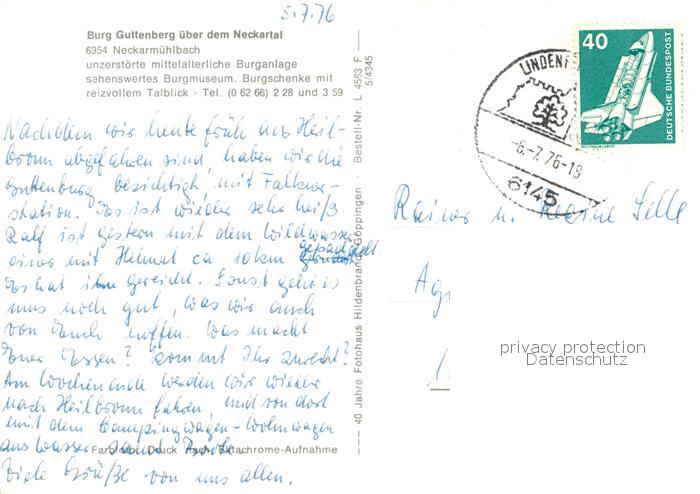 5.7.76
Burg Guttenberg über dem Neckartal
6954 Neckarmühlbach
unzerstörte mittelalterliche Burganlage
sehenswertes Burgmuseum. Burgschenke mit
reizvollem Talblick · Tel. (0 62 66) 2 28 und 3 59
Nachdem wir heute früh aus Heil-
bronn abgefahren sind, haben wir die
Guttenburg besichtigt mit Falkner-
station. Es ist wieder sehr heiß.
Ralf ist gestern mit dem Wildwasser
einer mit Helmut ca 10 km gepaddelt.
Es hat ihm gereicht. Sonst geht es
uns noch gut, was wir auch
von Euch hoffen. Was macht
Euer Essen? Kommt Ihr zurecht?
Am Wochenende werden wir wieder
nach Heilbronn fahren, und von dort
mit dem Campingwagen - Wohnwagen
ans Wasser
Farbfoto, Druck nach Ektachrome-Aufnahme
Viele Grüße von uns allen.
40 Jahre Fotohaus Hildenbrand, Göppingen · Bestell-Nr. L 4563 F
5/4345
40
DEUTSCHE BUNDESPOST
WELTRAUMLABOR
LINDENF
-6.-7.76-19
6145
Rainer u. Selle
privacy protection
Datenschutz